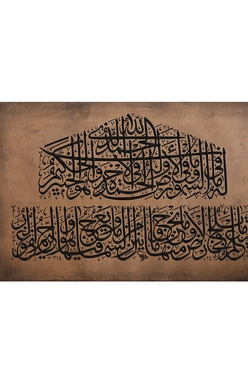 الحمد لله الذي
له ما في السموات وما في الأرض وله الحمد في الآخرة وهو الحكيم
ما يلج في الأرض وما يخرج منها وما ينزل من السماء وما يعرج فيها وهو الرحيم الغفور